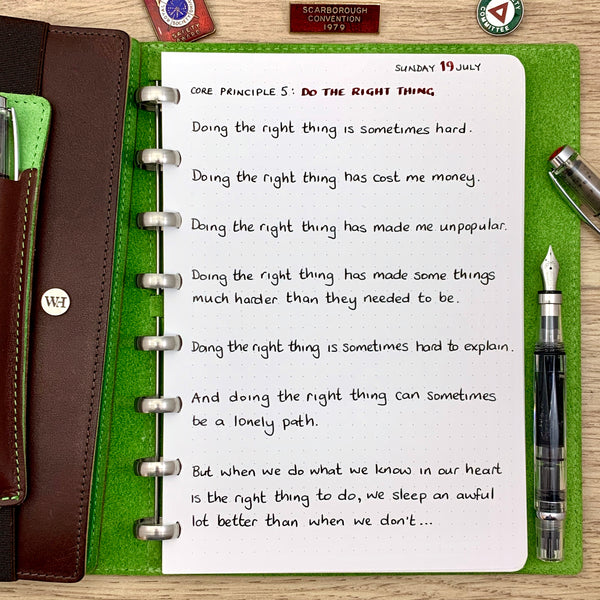 SCARBOROUGH
CONVENTION
1979
SAFETY
COMMITTEE
SUNDAY 19 JULY
CORE PRINCIPLE 5: DO THE RIGHT THING
Doing the right thing is sometimes hard.
Doing the right thing has cost me money.
Doing the right thing has made me unpopular.
Doing the right thing has made some things
much harder than they needed to be.
Doing the right thing is sometimes hard to explain.
And doing the right thing can sometimes
be a lonely path.
But when we do what we know in our heart
is the right thing to do, we sleep an awful
lot better than when we don't...
WH